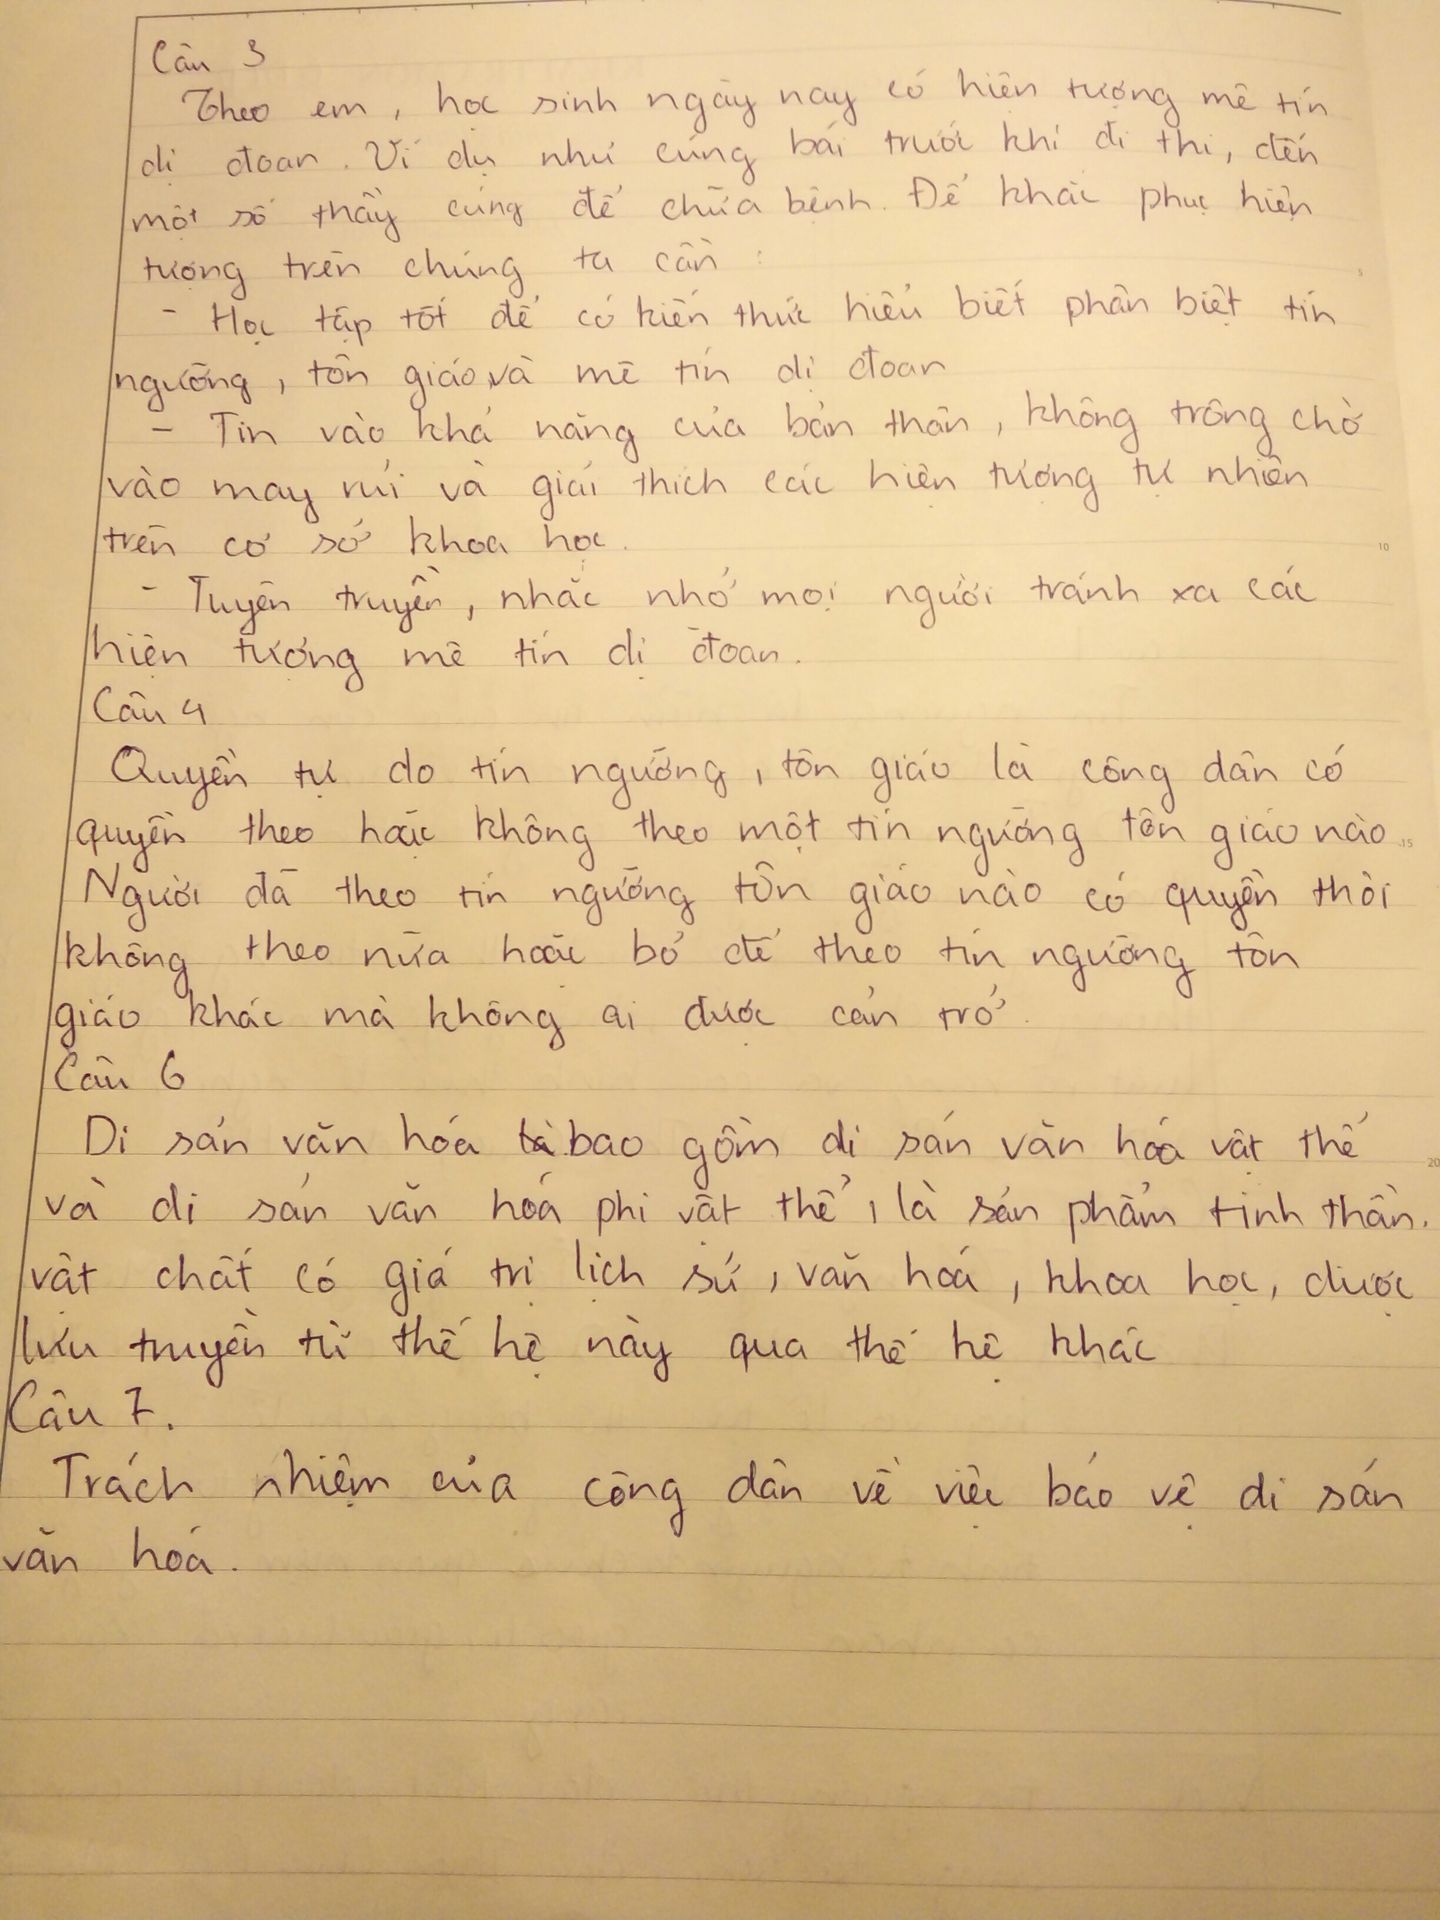 Câu 3
Theo em, học sinh ngày nay có hiện tượng mê tín
dị đoan. Ví dụ như cúng bái trước khi đi thi, đến
một số thầy cúng để chữa bệnh. Để khắc phục hiện
tượng trên chúng ta cần :
- Học tập tốt để có kiến thức hiểu biết phân biệt tín
ngưỡng, tôn giáo, và mê tín dị đoan
- Tin vào khả năng của bản thân, không trông chờ
vào may rủi và giải thích các hiện tượng tự nhiên
trên cơ sở khoa học.
- Tuyên truyền, nhắc nhở mọi người tránh xa các
hiện tượng mê tín dị đoan.
Câu 4
Quyền tự do tín ngưỡng, tôn giáo là công dân có
quyền theo hoặc không theo một tín ngưỡng tôn giáo nào
Người đã theo tín ngưỡng tôn giáo nào có quyền thôi
không theo nữa hoặc bỏ để theo tín ngưỡng tôn
giáo khác mà không ai được cản trở.
Câu 6
Di sản văn hóa là bao gồm di sản văn hóa vật thể
và di sản văn hoá phi vật thể, là sản phẩm tinh thần.
vật chất có giá trị lịch sử, văn hoá, khoa học, được
lưu truyền từ thế hệ này qua thế hệ khác
Câu 7.
Trách nhiệm của công dân về việc bảo vệ di sản
văn hoá.
5
10
15
20